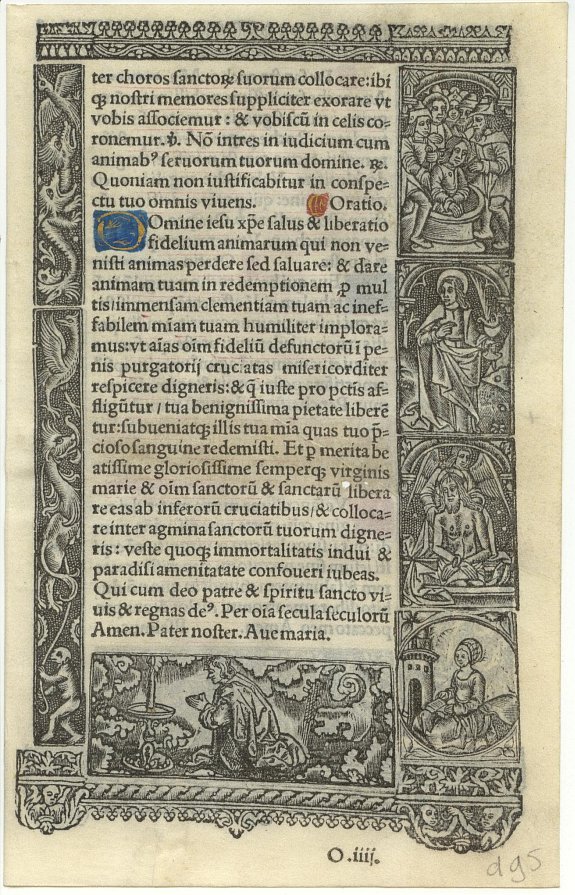 ter choros sanctoꝝ suorum collocare: ibi
qꝫ nostri memores suppliciter exorare vt
vobis associemur: & vobiscũ in celis co-
ronemur. ℣. Nõ intres in iudicium cum
animabꝰ seruorum tuorum domine. ℟.
Quoniam non iustificabitur in conspe-
ctu tuo omnis viuens. Oratio.
Domine iesu xp̃e salus & liberatio
fidelium animarum qui non ve-
nisti animas perdere sed saluare: & dare
animam tuam in redemptionem ꝓ mul
tis/immensam clementiam tuam ac inef-
fabilem mĩam tuam humiliter implora-
mus: vt aĩas oĩm fideliũ defunctorũ ĩ pe-
nis purgatorij cruciatas misericorditer
respicere digneris: & q̃ iuste pro pctĩs af-
fligũtur / tua benignissima pietate liberẽ
tur: subueniatqꝫ illis tua mĩa quas tuo p̃-
cioso sanguine redemisti. Et ꝑ merita be
atissime gloriosissime semperqꝫ virginis
marie & oĩm sanctorũ & sanctarũ libera
re eas ab inferorũ cruciatibus/ & colloca-
re inter agmina sanctorũ tuorum digne-
ris: veste quoqꝫ immortalitatis indui &
paradisi amenitatate confoueri iubeas.
Qui cum deo patre & spiritu sancto vi-
uis & regnas deꝰ. Per oĩa secula seculorũ
Amen. Pater noster. Aue maria.
O.iiij.
d95